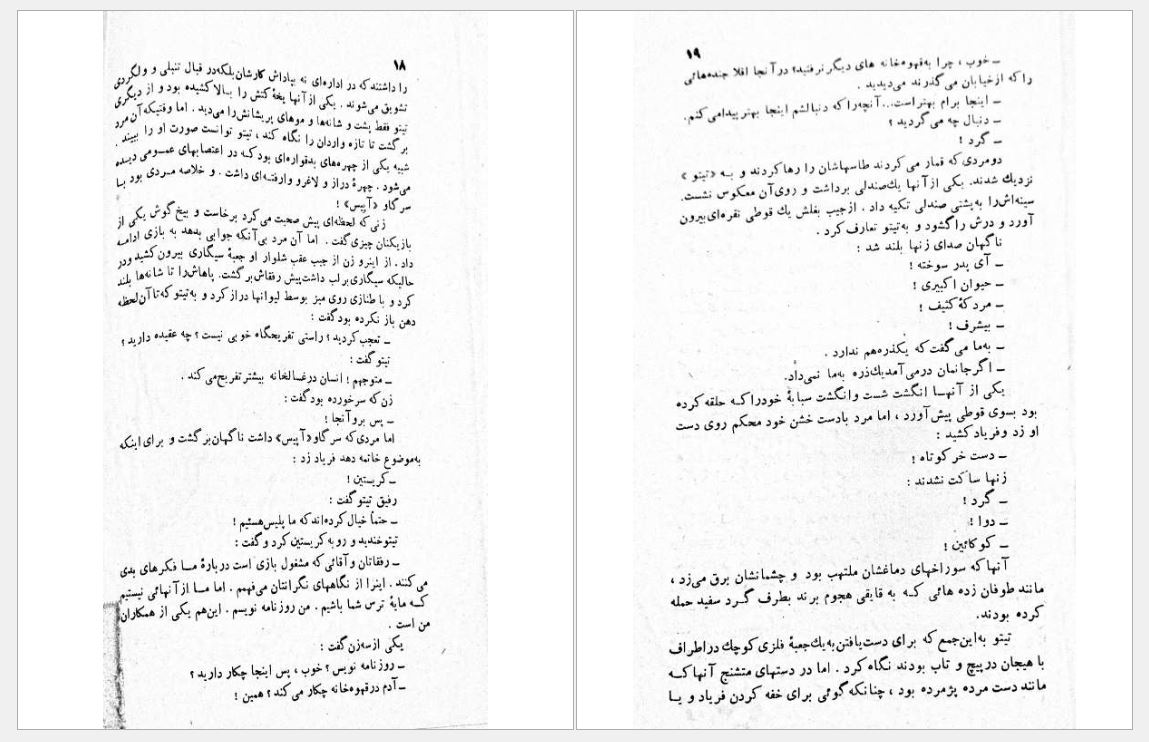 ۱۸
را داشتند که در اداره‌ای نه بپاداش کارشان بلکه در قبال تنبلی و ولگردی
تشویق می‌شوند . یکی از آنها یخهٔ کتش را بالا کشیده بود و از دیگری
تیتو فقط پشت و شانه‌ها و موهای پریشانش را می‌دید . اما وقتیکه آن مرد
برگشت تا تازه واردان را نگاه کند ، تیتو توانست صورت او را ببیند .
شبیه یکی از چهره‌های بدقواره‌ای بود که در اعتصابهای عمومی دیده
می‌شود . چهرهٔ دراز و لاغر و وارفته‌ای داشت . و خلاصه مردی بود با
سر گاو «آپیس» !
زنی که لحظه‌ای پیش صحبت می‌کرد برخاست و بیخ گوش یکی از
بازیکنان چیزی گفت . اما آن مرد بی‌آنکه جوابی بدهد به بازی ادامه
داد . از اینرو زن از جیب عقب شلوار او جعبهٔ سیگاری بیرون کشید و در
حالیکه سیگاری بر لب داشت پیش رفقاش برگشت. پاهاش را تا شانه‌ها بلند
کرد و با طنازی روی میز بوسط لیوانها دراز کرد و به تیتو که تا آن لحظه
دهن باز نکرده بود گفت :
ــ تعجب کردید ؟ راستی تفریحگاه خوبی نیست ؟ چه عقیده دارید ؟
تیتو گفت :
ــ متوجهم ! انسان در غسالخانه بیشتر تفریح می‌کند .
زن که سرخورده بود گفت :
ــ پس برو آنجا !
اما مردی که سر گاو «آپیس» داشت ناگهان برگشت و برای اینکه
به موضوع خاتمه دهد فریاد زد :
ــ کریستین !
رفیق تیتو گفت :
ــ حتماً خیال کرده‌اند که ما پلیس هستیم !
تیتو خندید و رو به کریستین کرد و گفت :
ــ رفقاتان و آقائی که مشغول بازی است دربارهٔ ما فکرهای بدی
می‌کنند . اینرا از نگاههای نگرانتان می‌فهمم . اما ما از آنهائی نیستیم
که مایهٔ ترس شما باشیم . من روزنامه نویسم . این هم یکی از همکاران
من است .
یکی از سه زن گفت :
ــ روزنامه نویس ؟ خوب ، پس اینجا چکار دارید ؟
ــ آدم در قهوه‌خانه چکار می‌کند ؟ همین !
۱۹
ــ خوب ، چرا به قهوه‌خانه های دیگر نرفتید؟ در آنجا اقلا جنده‌هائی
را که از خیابان می‌گذرند می‌دیدید .
ــ اینجا برام بهتر است... آنچه را که دنبالشم اینجا بهتر پیدا می‌کنم.
ــ دنبال چه می‌گردید ؟
ــ گرد !
دو مردی که قمار می‌کردند طاسهاشان را رها کردند و به «تیتو »
نزدیک شدند. یکی از آنها یک صندلی برداشت و روی آن معکوس نشست.
سینه‌اش را به پشتی صندلی تکیه داد . از جیب بغلش یک قوطی نقره‌ای بیرون
آورد و درش را گشود و به تیتو تعارف کرد .
ناگهان صدای زنها بلند شد :
ــ آی پدر سوخته !
ــ حیوان اکبیری !
ــ مردکهٔ کثیف !
ــ بیشرف !
ــ به ما می‌گفت که یکذره هم ندارد .
ــ اگر جانمان درمی‌آمد یک ذره به ما نمی‌داد.
یکی از آنها انگشت شست و انگشت سبابهٔ خود را که حلقه کرده
بود بسوی قوطی پیش آورد ، اما مرد با دست خشن خود محکم روی دست
او زد و فریاد کشید :
ــ دست خر کوتاه !
زنها ساکت نشدند :
ــ گرد !
ــ دوا !
ــ کوکائین !
آنها که سوراخهای دماغشان ملتهب بود و چشمانشان برق می‌زد ،
مانند طوفان زده هائی که به قایقی هجوم برند بطرف گرد سفید حمله
کرده بودند.
تیتو به این جمع که برای دست یافتن به یک جعبهٔ فلزی کوچک در اطراف
با هیجان در پیچ و تاب بودند نگاه کرد . اما در دستهای متشنج آنها که
مانند دست مرده پژمرده بود ، چنانکه گوئی برای خفه کردن فریاد و یا